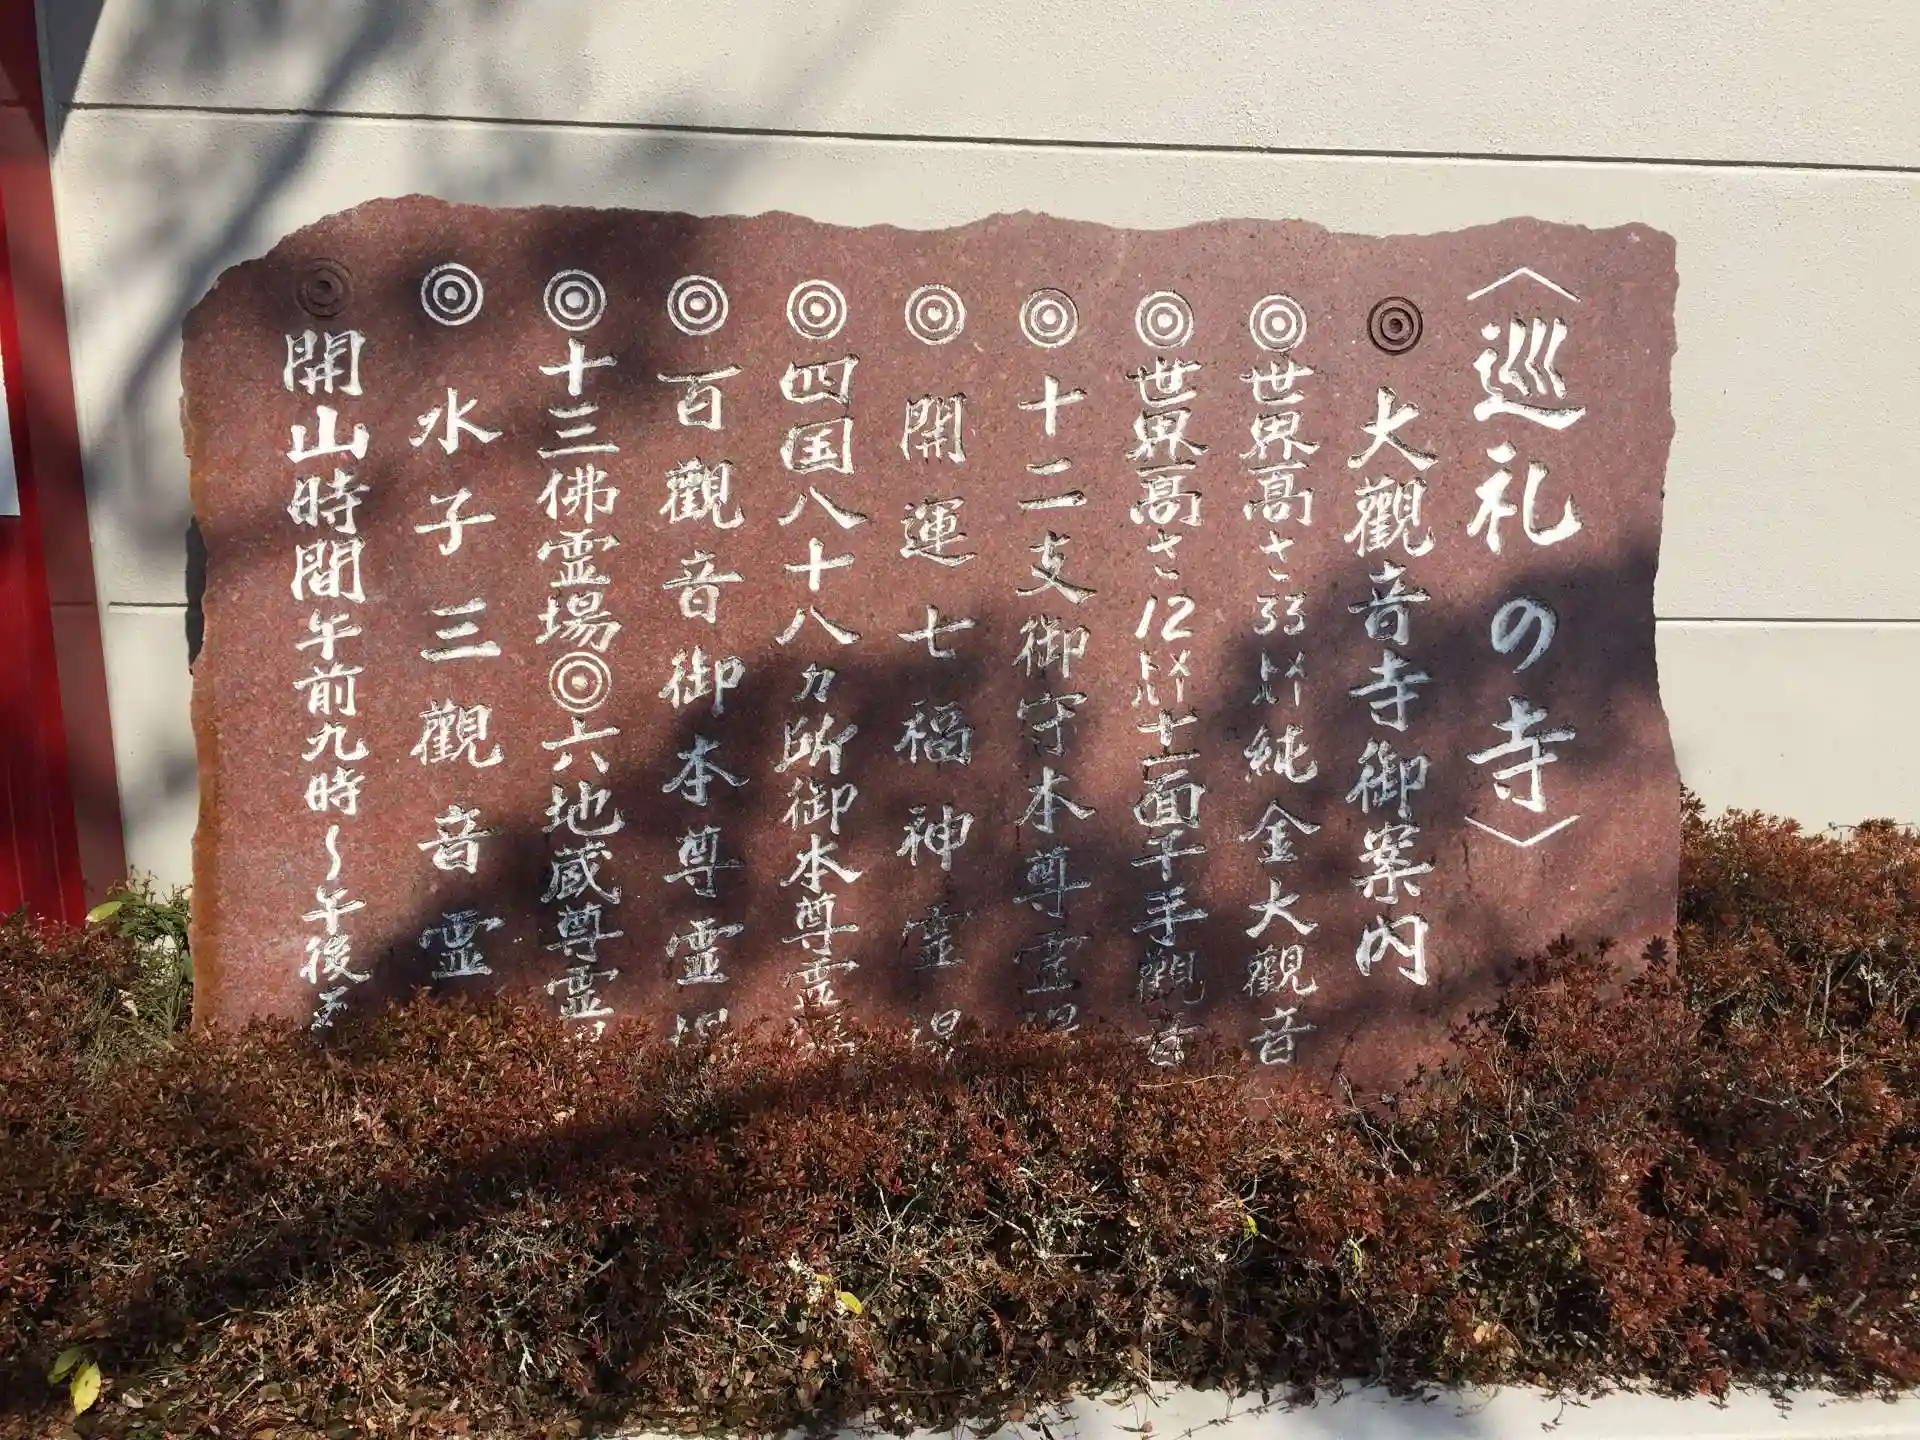 〈巡礼の寺〉
◎大觀音寺御案内
◎世界高さ33㍍純金大觀音
◎世界高さ12㍍十一面千手觀音
◎十二支御守本尊霊場
◎開運七福神霊場
◎四国八十八カ所御本尊霊場
◎百觀音御本尊霊場
◎十三佛霊場◎六地蔵尊霊場
◎水子三觀音霊
◎開山時間午前九時～午後五